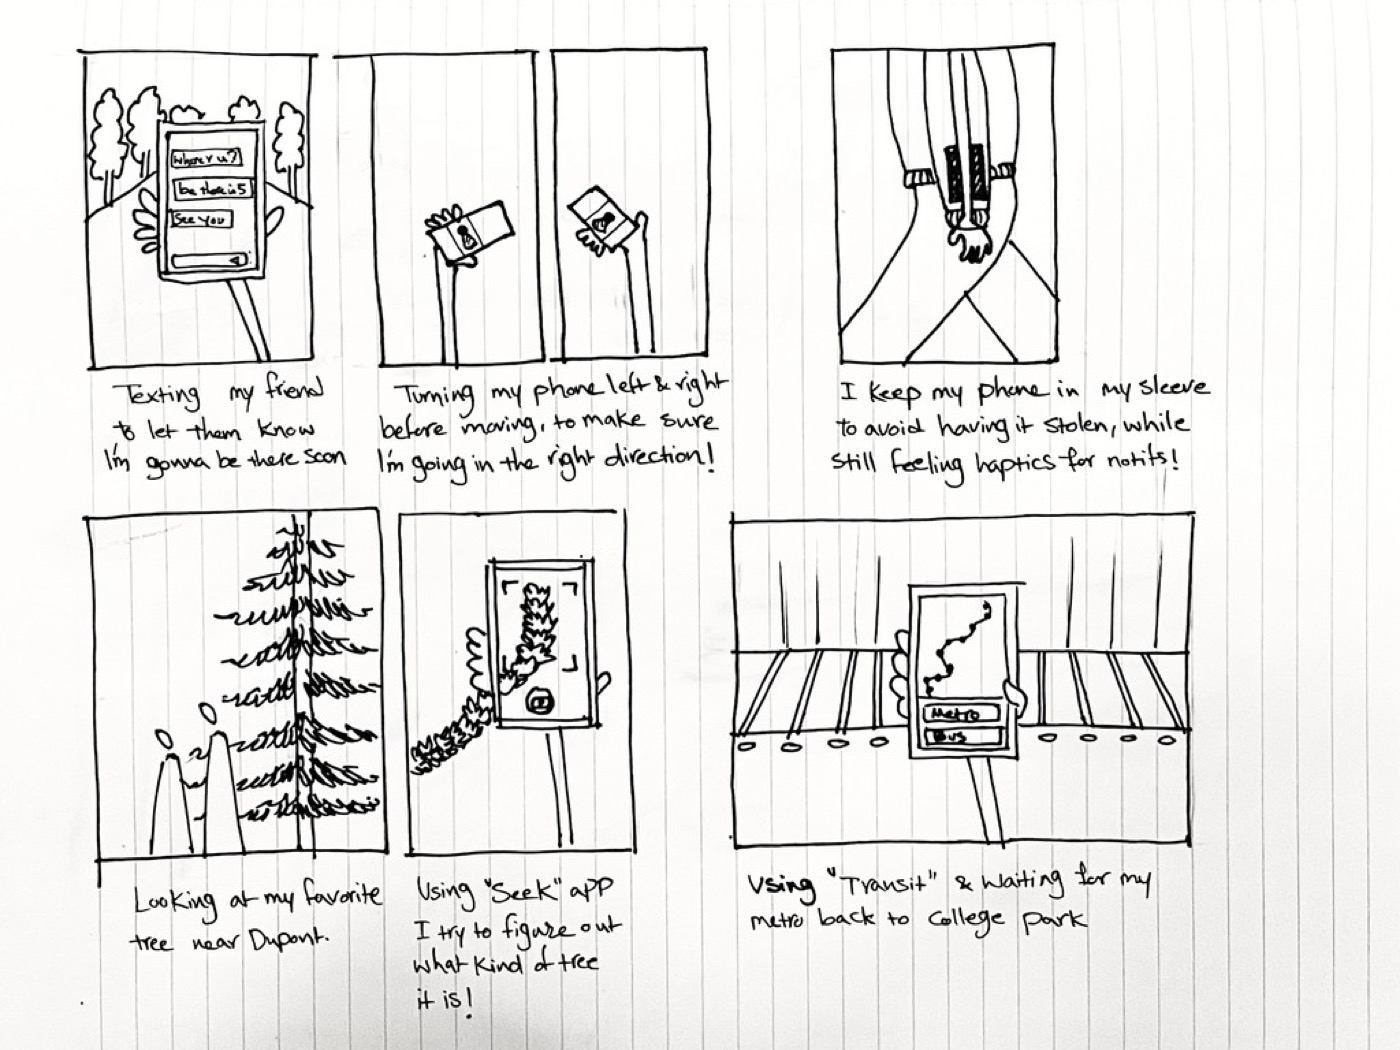 where r u?
be there in 5
See you
Texting my friend
to let them know
I'm gonna be there soon
Turning my phone left & right
before moving, to make sure
I'm going in the right direction!
I keep my phone in my sleeve
to avoid having it stolen, while
still feeling haptics for notifs!
Looking at my favorite
tree near Dupont.
Using "Seek" app
I try to figure out
what kind of tree
it is!
Metro
Bus
Using "Transit" & waiting for my
metro back to college park